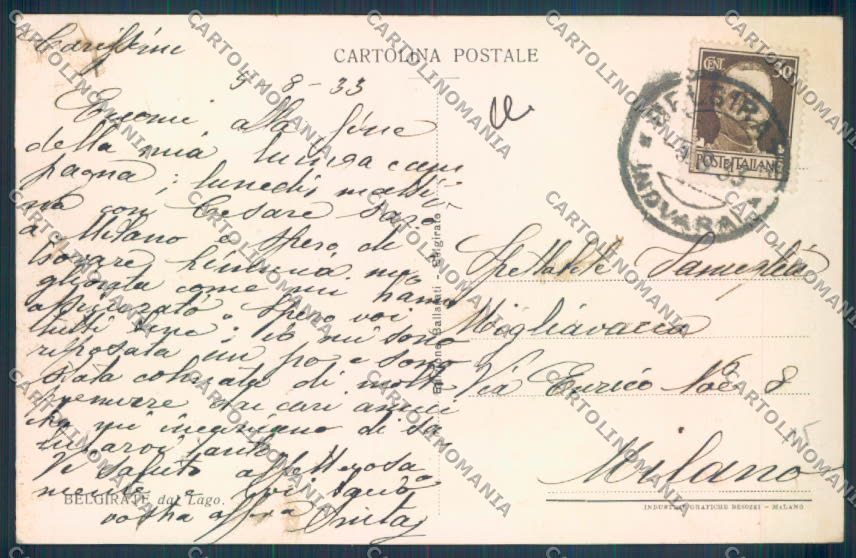 CARTOLINA POSTALE
Carissime
5-8-33
Eccomi alla fine
della mia lunga cam
pagna; lunedì matti
na con Cesare sarò
a Milano e spero di
trovare mi
gliorata come mi hanno
assicurato. Spero voi
tutti bene; io mi sono
riposata un pò e sono
stata colmata di molte
premure dai cari amici
che mi incaricano di sa
lutarvi tanto.
Vi saluto affettuosa
mente e voi
vostra aff.ma
BELGIRATE dal Lago.
Edizione Ballarati - Belgirate
CENT. 30
POSTE ITALIANE
(NOVARA)
Spettabile Famiglia
Migliavacca
Via Enrico Noë 8
Milano
INDUSTRIE GRAFICHE BESOZZI - MILANO
CARTOLINOMANIA